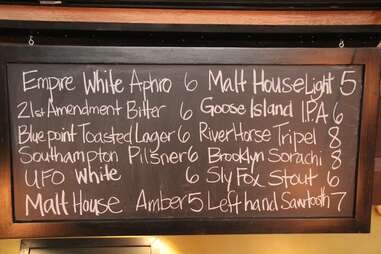 Empire White Aphro 6
21st Amendment Bitter 6
Blue point Toasted Lager 6
Southampton Pilsner 6
UFO White 6
Malt House Amber 5
Malt House Light 5
Goose Island IPA 6
River Horse Tripel 8
Brooklyn Sorachi 8
Sly Fox Stout 6
Left hand Sawtooth 7